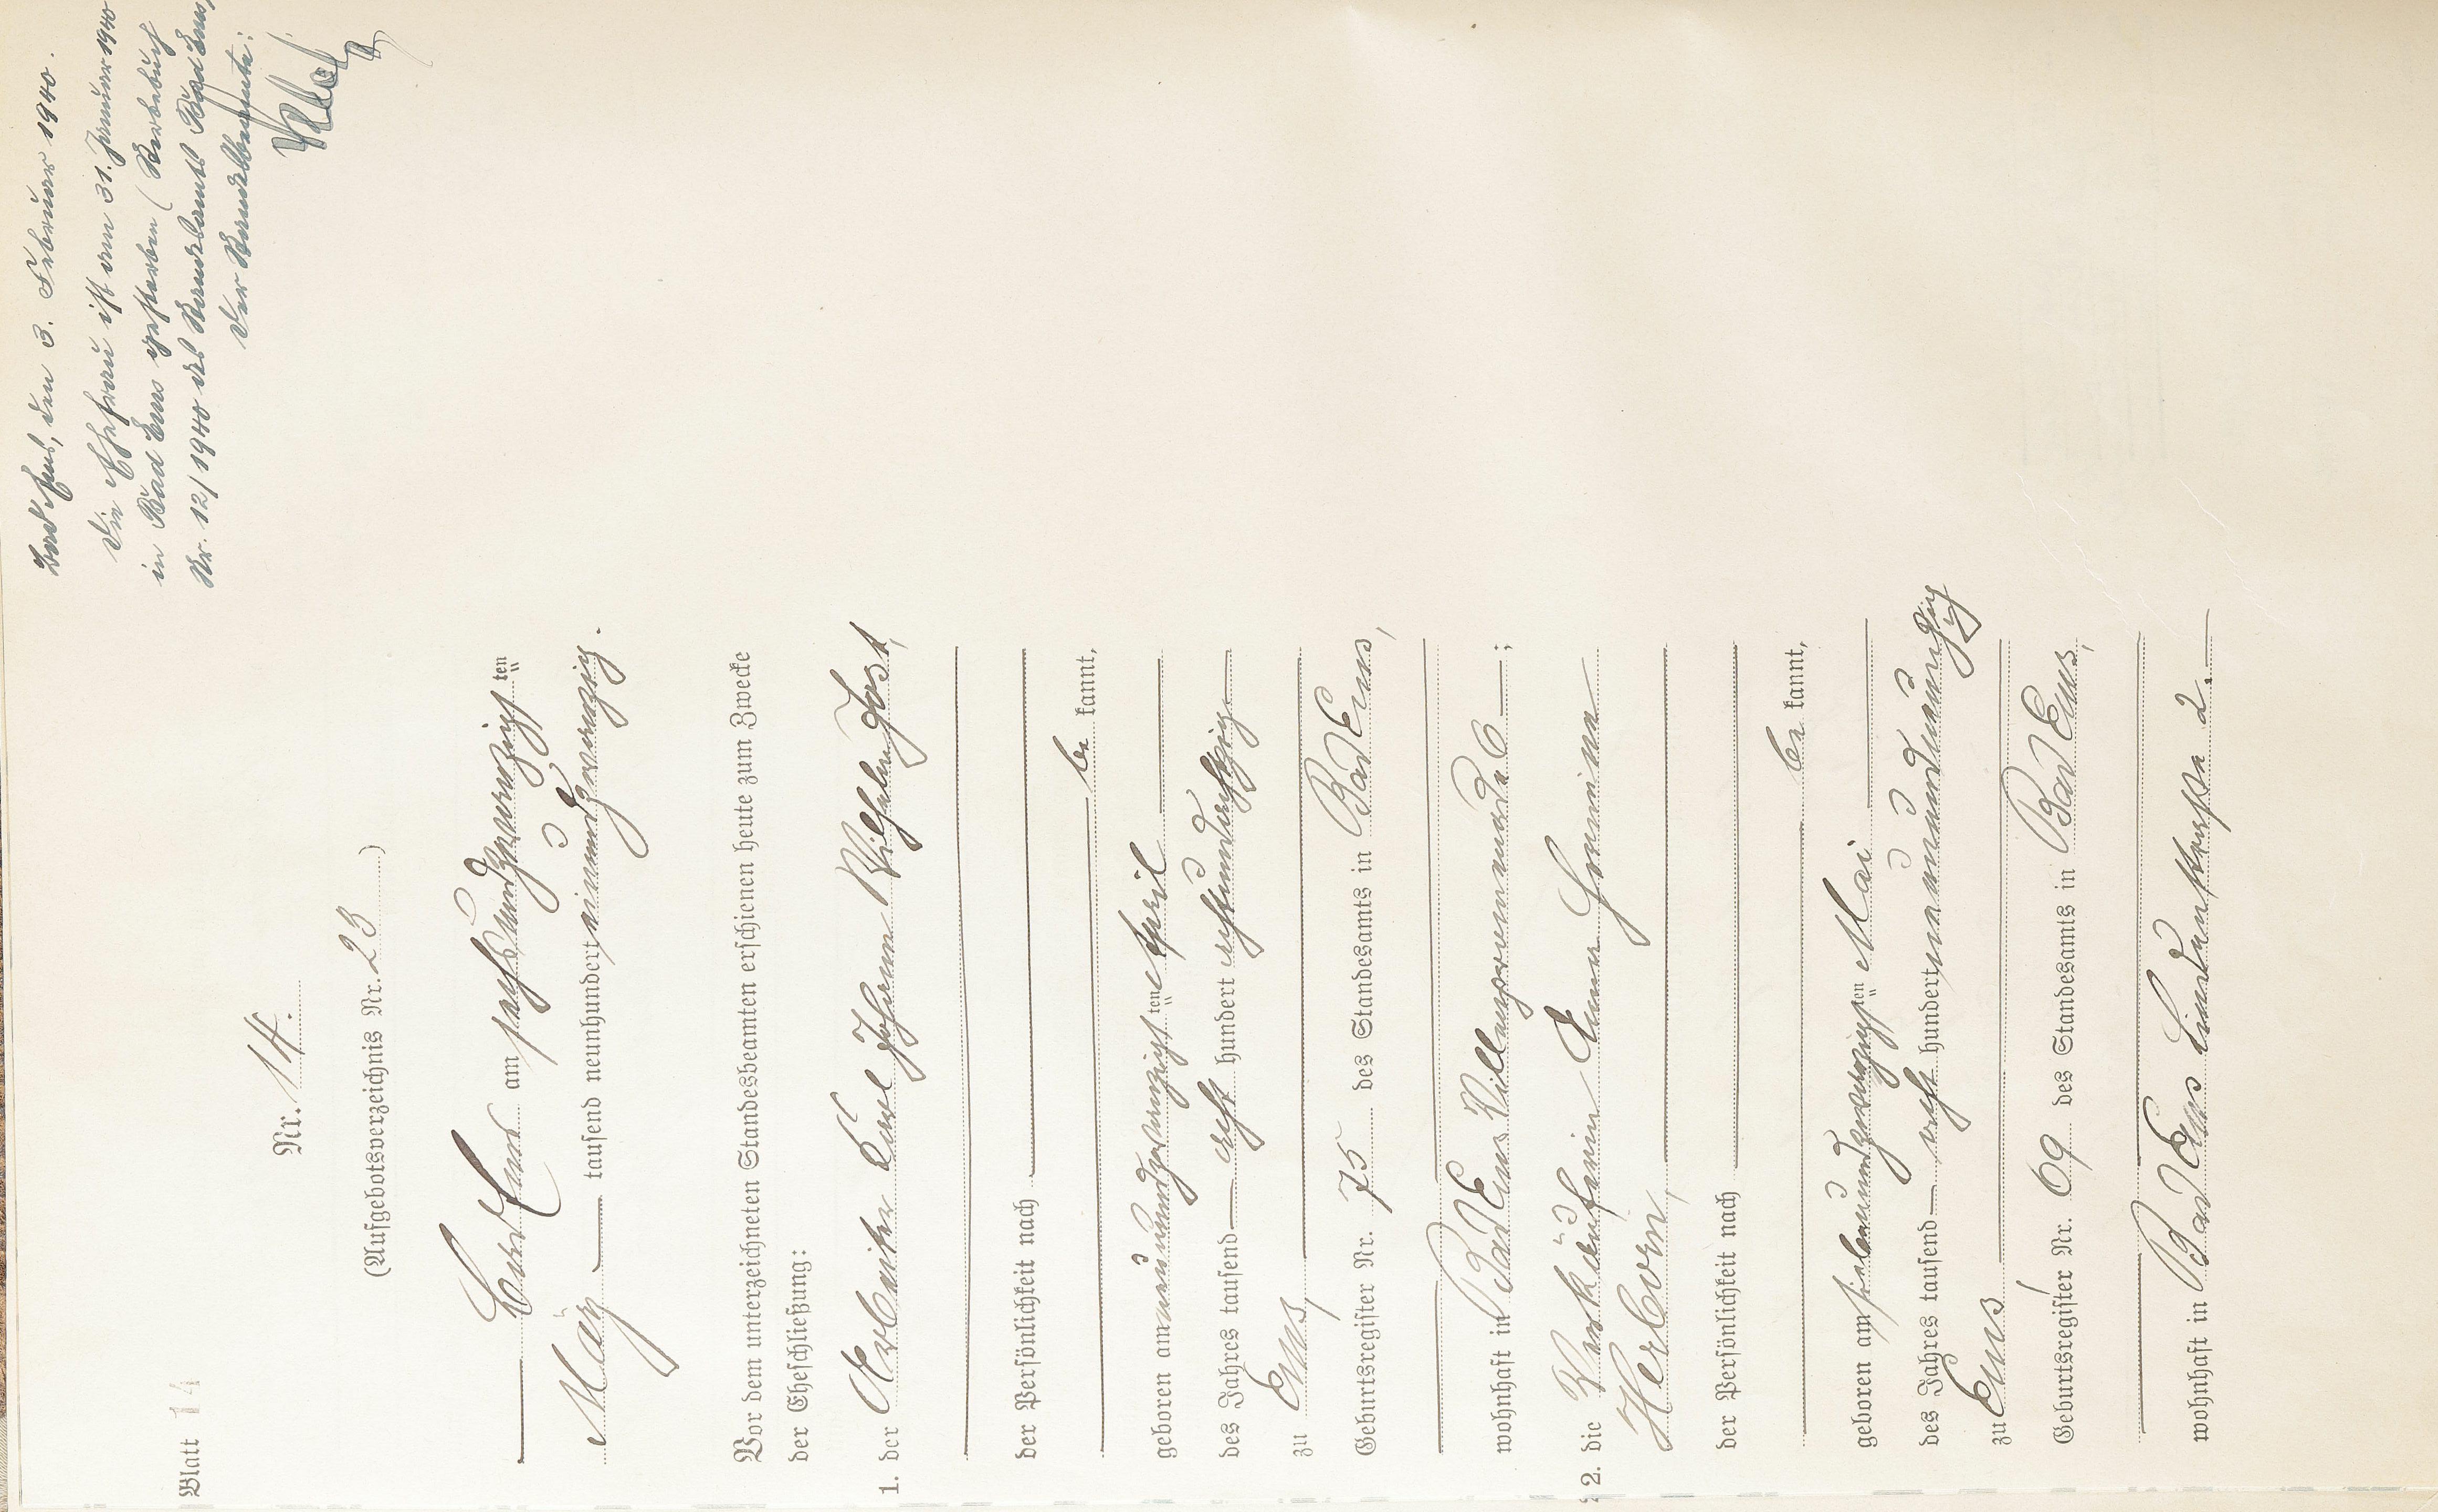 Blatt 14
Bad Ems, den 3. Februar 1940.
Die Ehefrau ist am 31. Januar 1940
in Bad Ems gestorben (Sterbebuch
Nr. 12/1940 des Standesamts Bad Ems)
Der Standesbeamte:
Nr. 14.
(Aufgebotsverzeichnis Nr. 23)
Bad Ems am sechsundzwanzigsten
März tausend neunhundert einundzwanzig.
Vor dem unterzeichneten Standesbeamten erschienen heute zum Zwecke
der Eheschließung:
1. der Arbeiter Karl Johann Wilhelm Jost,
der Persönlichkeit nach
be kannt,
geboren am neunundzwanzigsten April
des Jahres tausend acht hundert achtundachtzig
zu Ems,
Geburtsregister Nr. 75 des Standesamts in Bad Ems,
wohnhaft in Bad Ems 6;
2. die Verkäuferin Anna Hermine
Herborn,
der Persönlichkeit nach
be kannt,
geboren am siebenundzwanzigsten Mai
des Jahres tausend acht hundert neunundneunzig
zu Ems
Geburtsregister Nr. 69 des Standesamts in Bad Ems,
wohnhaft in Bad Ems Lindenstrasse 2.